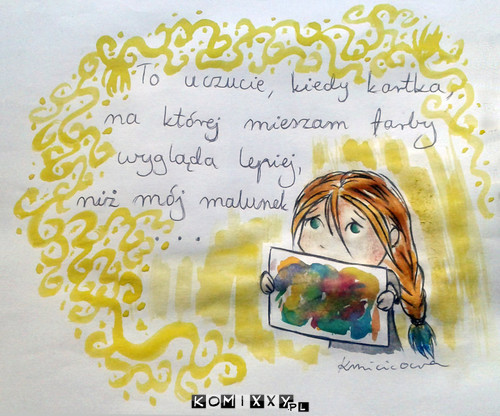 To uczucie, kiedy kartka,
na której mieszam farby
wygląda lepiej,
niż mój malunek
....
Kmicicowa
KOMIXXY.PL